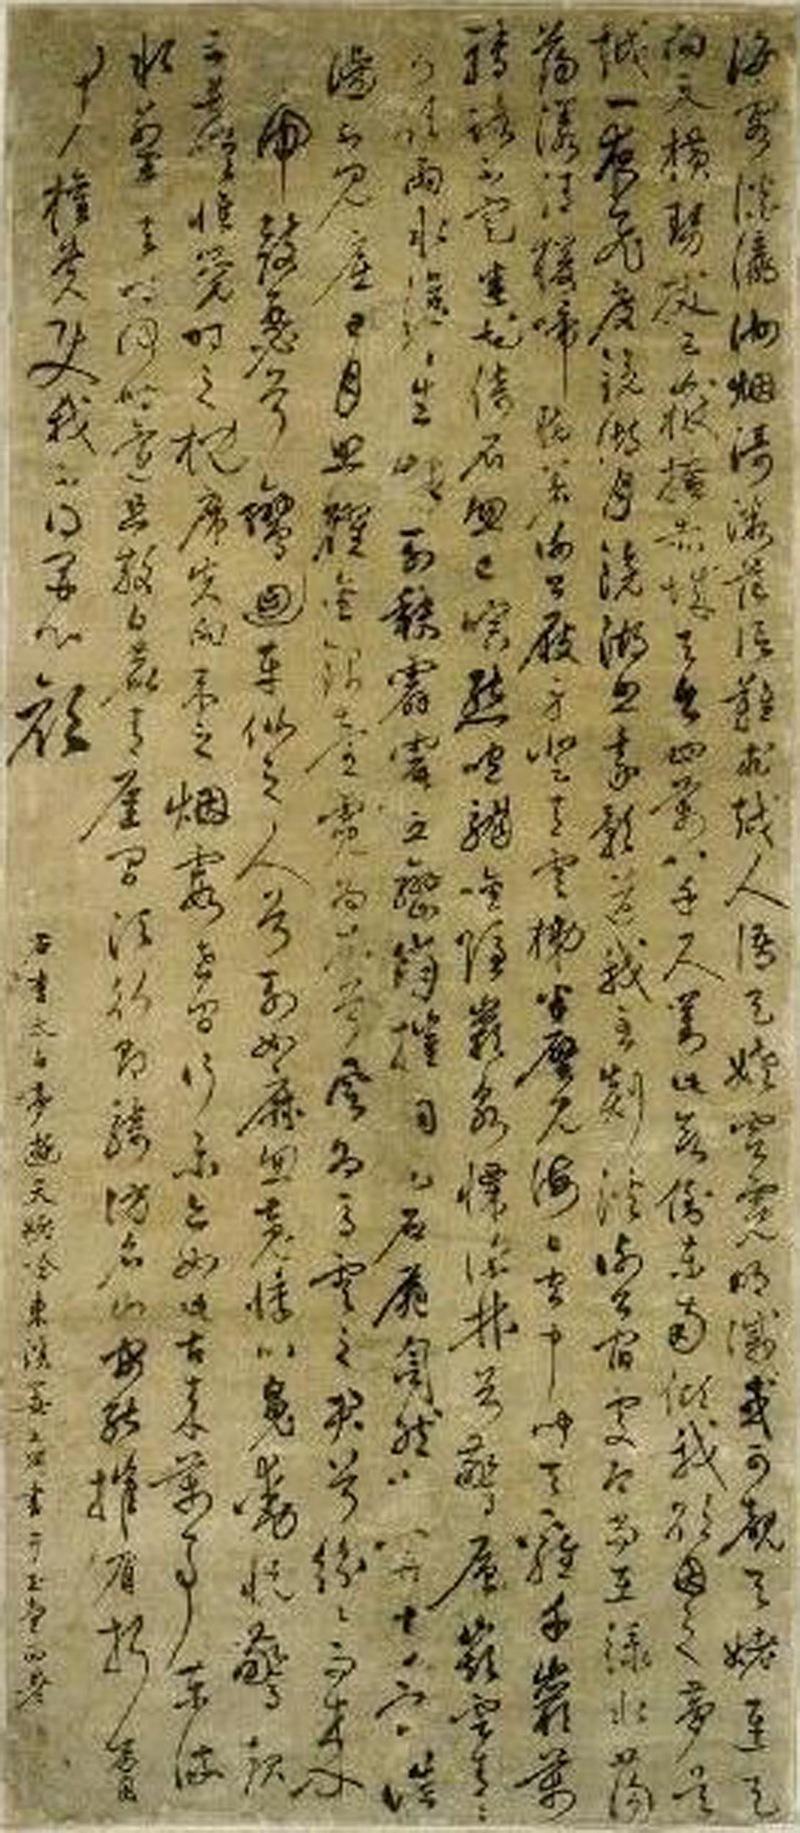 海客談瀛洲烟濤微茫信難求越人語天姥雲霓明滅或可覩天姥連天
向天橫勢拔五嶽掩赤城天台四萬八千尺對此欲倒東南傾我欲因之夢吳
越一夜飛度鏡湖月鏡湖照我影送我至剡溪謝公宿處今尚在淥水蕩
蕩漾清猿啼脚著謝公屐身登青雲梯半壁見海日空中聞天雞千巖萬
轉路不定迷花倚石忽已暝熊咆龍吟殷巖泉慄深林兮驚層巔雲青青
兮欲雨水澹澹生烟列缺霹靂丘巒崩摧洞天石扉訇然中開青冥浩
蕩不見底日月照耀金銀臺霓為衣兮風為馬雲之君兮紛紛而來下
虎鼓瑟兮鸞回車仙之人兮列如麻忽魂悸以魄動怳驚起
而長嗟惟覺時之枕席失向來之烟霞世間行樂亦如此古來萬事東流
水別君去時何時還且放白鹿青崖間須行即騎訪名山安能摧眉折腰
事權貴使我不得開心顏
右書太白夢遊天姥吟東溪書于玉堂西署